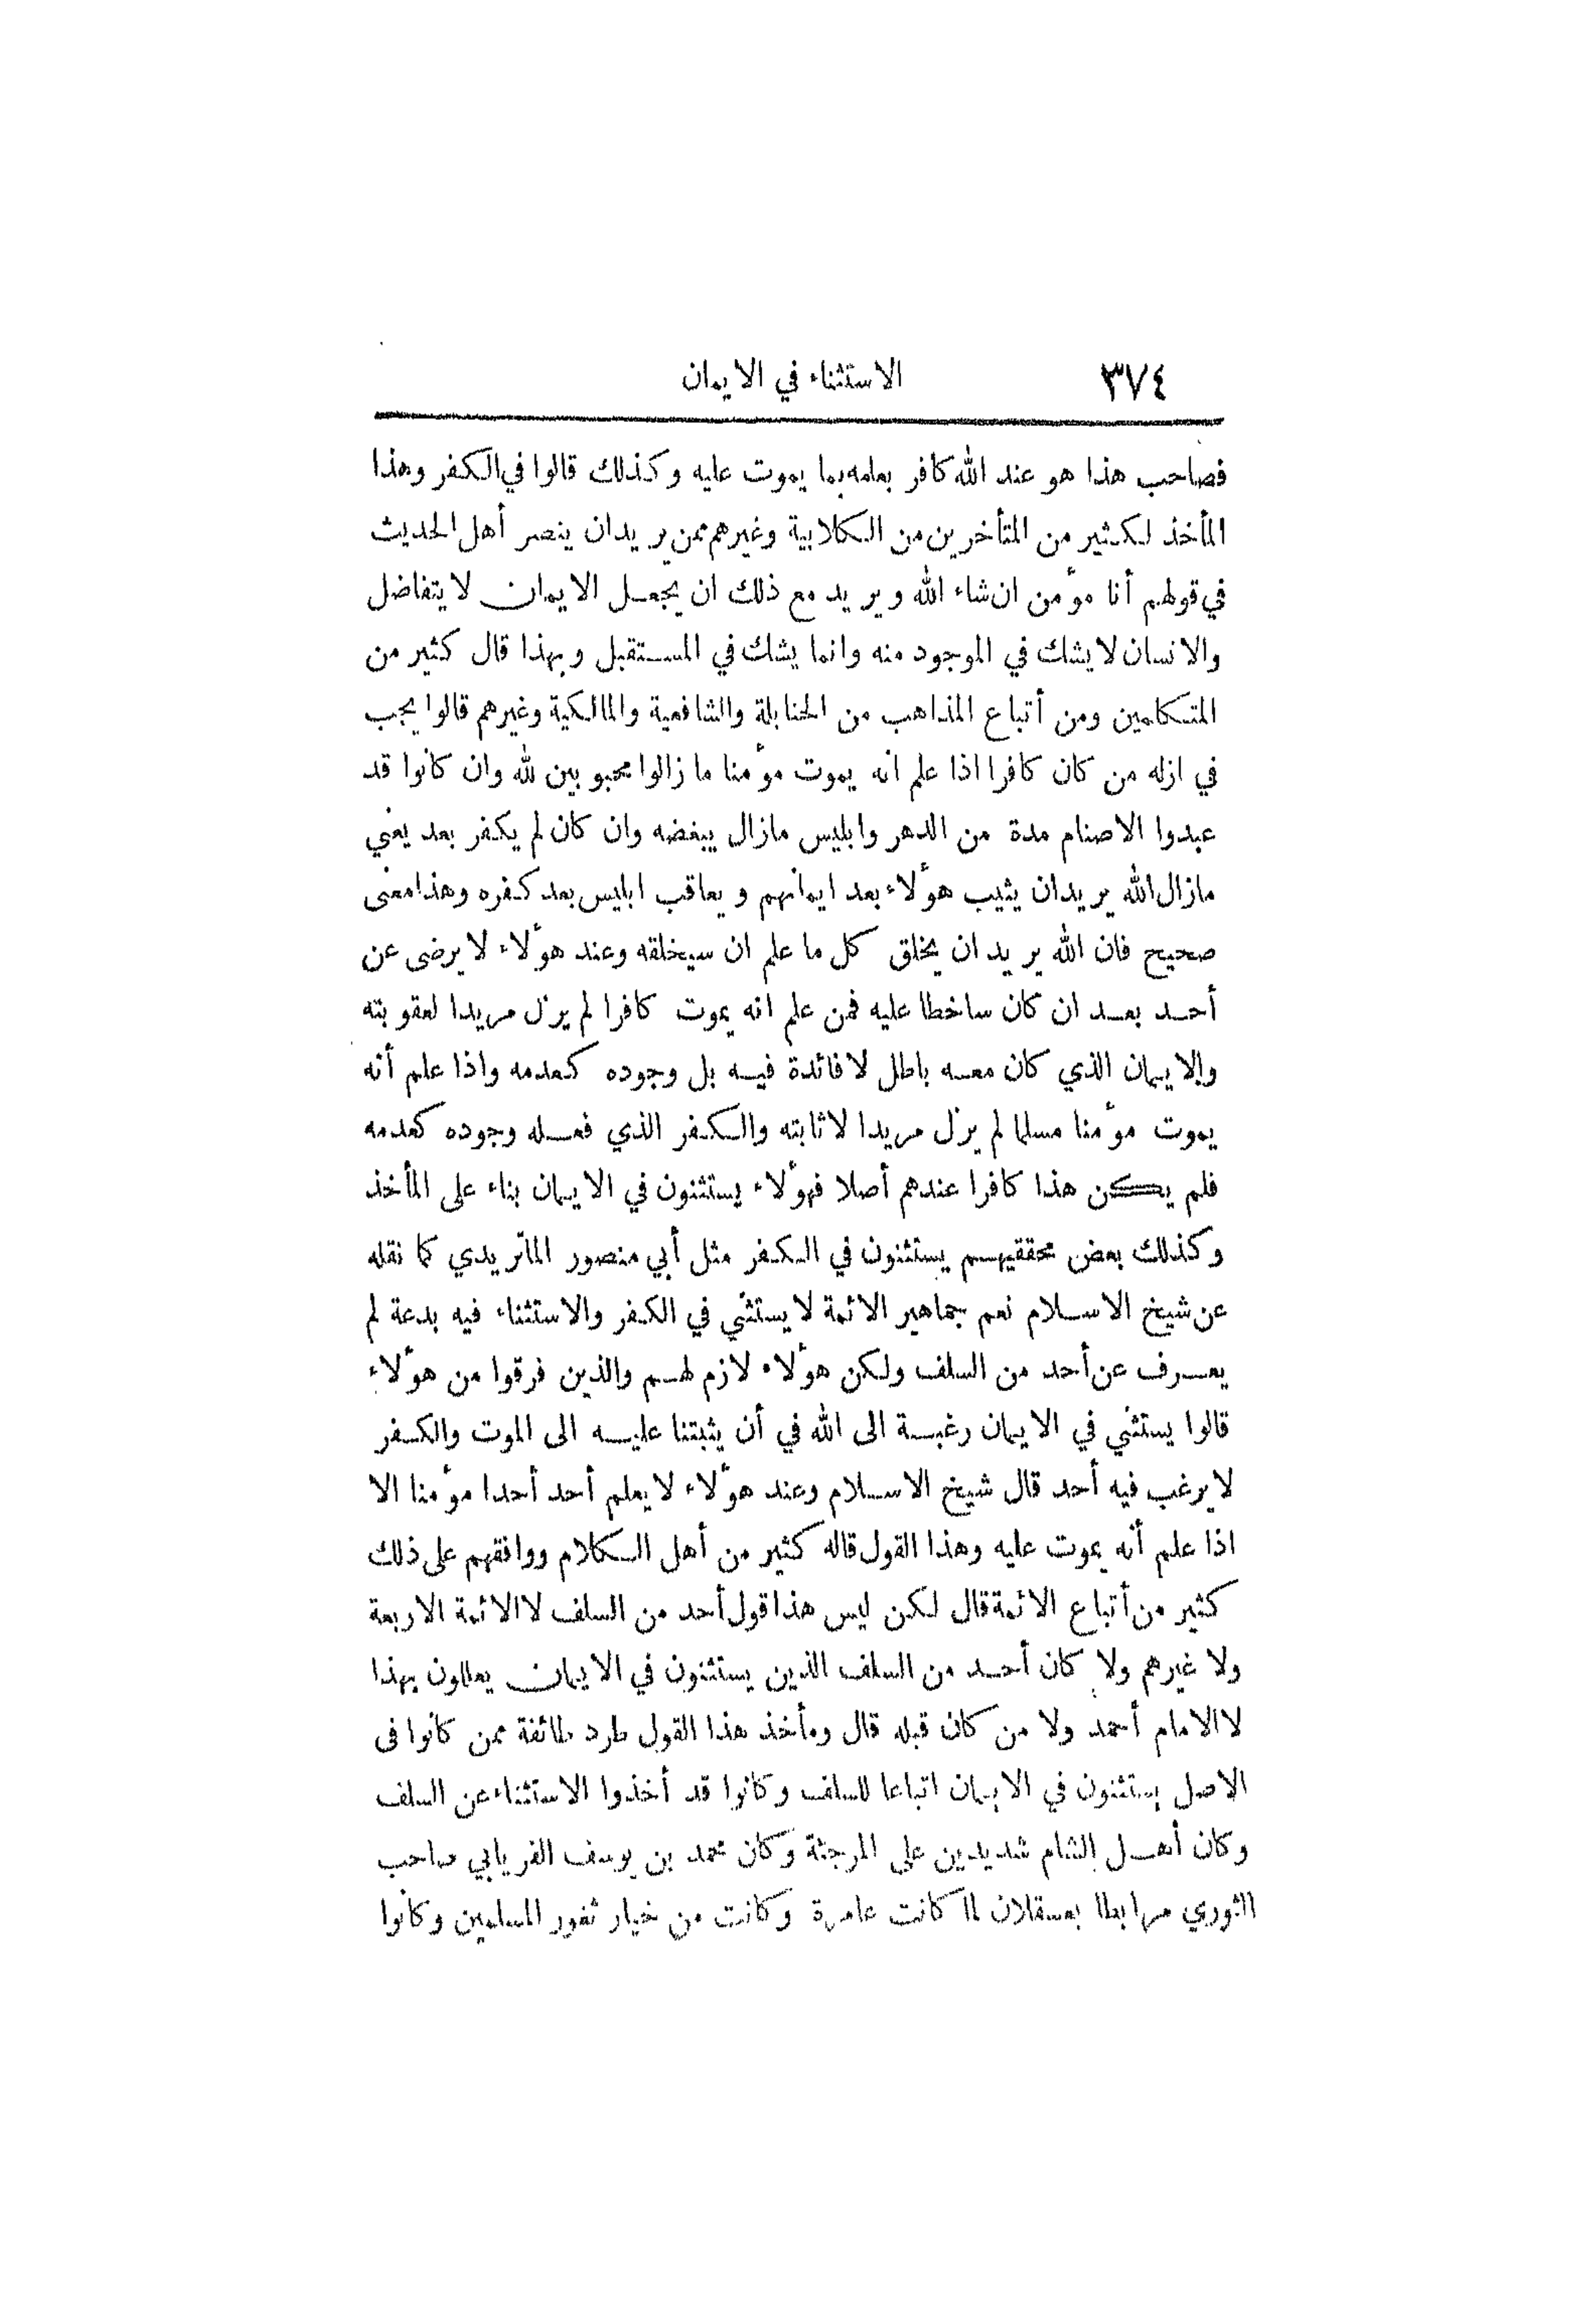 ٣٧٤ الاستثناء في الايمان
فصاحب هذا هو عند الله كافر بعلمه بما يموت عليه وكذلك قالوا في الكفر وهذا
المأخذ لكثير من المتأخرين من الكلابية وغيرهم ممن يريد ان ينصر أهل الحديث
في قولهم أنا مؤمن ان شاء الله ويريد مع ذلك ان يجعل الايمان لا يتفاضل
والانسان لا يشك في الموجود منه وانما يشك في المستقبل وبهذا قال كثير من
المتكلمين ومن أتباع المذاهب من الحنابلة والشافعية والمالكية وغيرهم قالوا يجب
في ازله من كان كافرا اذا علم انه يموت مؤمنا ما زالوا محبوبين لله وان كانوا قد
عبدوا الاصنام مدة من الدهر وابليس مازال يبغضه وان كان لم يكفر بعد يعني
مازال الله يريد ان يثيب هؤلاء بعد ايمانهم ويعاقب ابليس بعد كفره وهذا معنى
صحيح فان الله يريد ان يخلق كل ما علم ان سيخلقه وعند هؤلاء لا يرضى عن
أحد بعد ان كان ساخطا عليه فمن علم انه يموت كافرا لم يزل مريدا لعقوبته
والايمان الذي كان معه باطل لا فائدة فيه بل وجوده كعدمه واذا علم أنه
يموت مؤمنا مسلما لم يزل مريدا لاثابته والكفر الذي فعله وجوده كعدمه
فلم يكن هذا كافرا عندهم أصلا فهؤلاء يستثنون في الايمان بناء على المأخذ
وكذلك بعض محققيهم يستثنون في الكفر مثل أبي منصور الماتريدي كما نقله
عن شيخ الاسلام نعم جماهير الائمة لا يستثني في الكفر والاستثناء فيه بدعة لم
يعرف عن أحد من السلف ولكن هؤلاء لازم لهم والذين فرقوا من هؤلاء
قالوا يستثني في الايمان رغبة الى الله في أن يثبتنا عليه الى الموت والكفر
لا يرغب فيه أحد قال شيخ الاسلام وعند هؤلاء لا يعلم أحد أحدا مؤمنا الا
اذا علم أنه يموت عليه وهذا القول قاله كثير من أهل الكلام ووافقهم على ذلك
كثير من أتباع الائمة قال لكن ليس هذا قول أحد من السلف لا الائمة الاربعة
ولا غيرهم ولا كان أحد من السلف الذين يستثنون في الايمان يعللون بهذا
لا الامام أحمد ولا من كان قبله قال ومأخذ هذا القول طرد طائفة ممن كانوا فى
الاصل يستثنون في الايمان اتباعا للسلف وكانوا قد أخذوا الاستثناء عن السلف
وكان أهل الشام شديدين على المرجئة وكان محمد بن يوسف الفريابي صاحب
الثوري مرابطا بعسقلان لما كانت عامرة وكانت من خيار ثغور المسلمين وكانوا